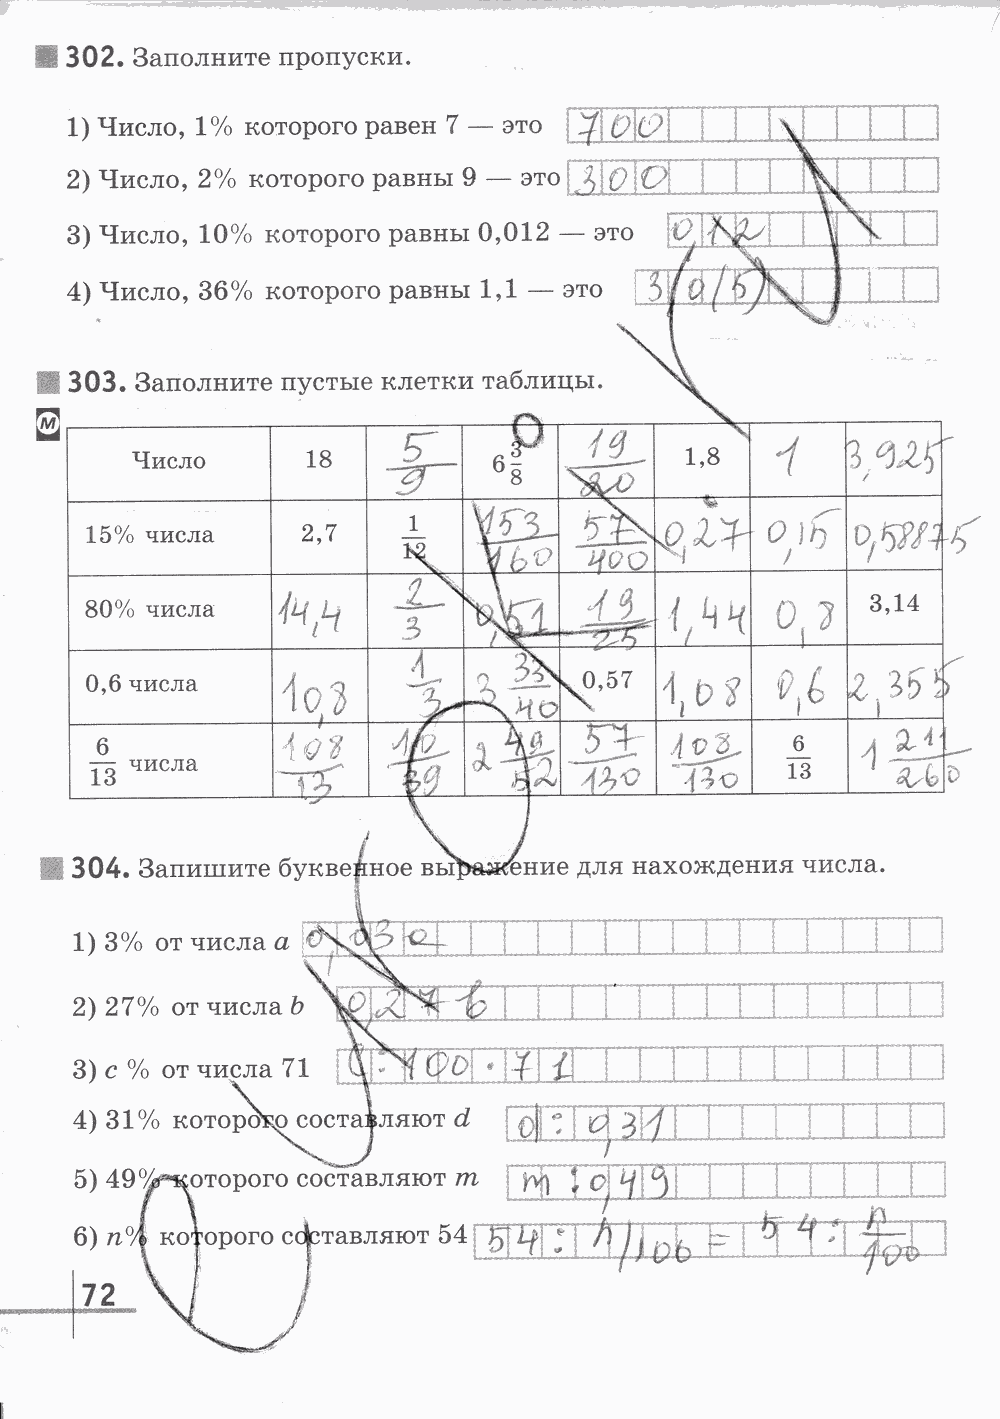 302. Заполните пропуски.
1) Число, 1% которого равен 7 — это 700
2) Число, 2% которого равны 9 — это 300
3) Число, 10% которого равны 0,012 — это 0,12
4) Число, 36% которого равны 1,1 — это 3,0(5)
303. Заполните пустые клетки таблицы.
М
Число 18 5/9 6 3/8 19/20 1,8 1 3,925
15% числа 2,7 1/12 153/160 57/400 0,27 0,15 0,58875
80% числа 14,4 2/3 0,51 19/25 1,44 0,8 3,14
0,6 числа 10,8 1/3 3 33/40 0,57 1,08 0,6 2,355
6/13 числа 108/13 10/39 2 49/52 57/130 108/130 6/13 1 211/260
304. Запишите буквенное выражение для нахождения числа.
1) 3% от числа a 0,03a
2) 27% от числа b 0,27b
3) c % от числа 71 c : 100 · 71
4) 31% которого составляют d d : 0,31
5) 49% которого составляют m m : 0,49
6) n% которого составляют 54 54 : n/100 = 54 : n/100
72